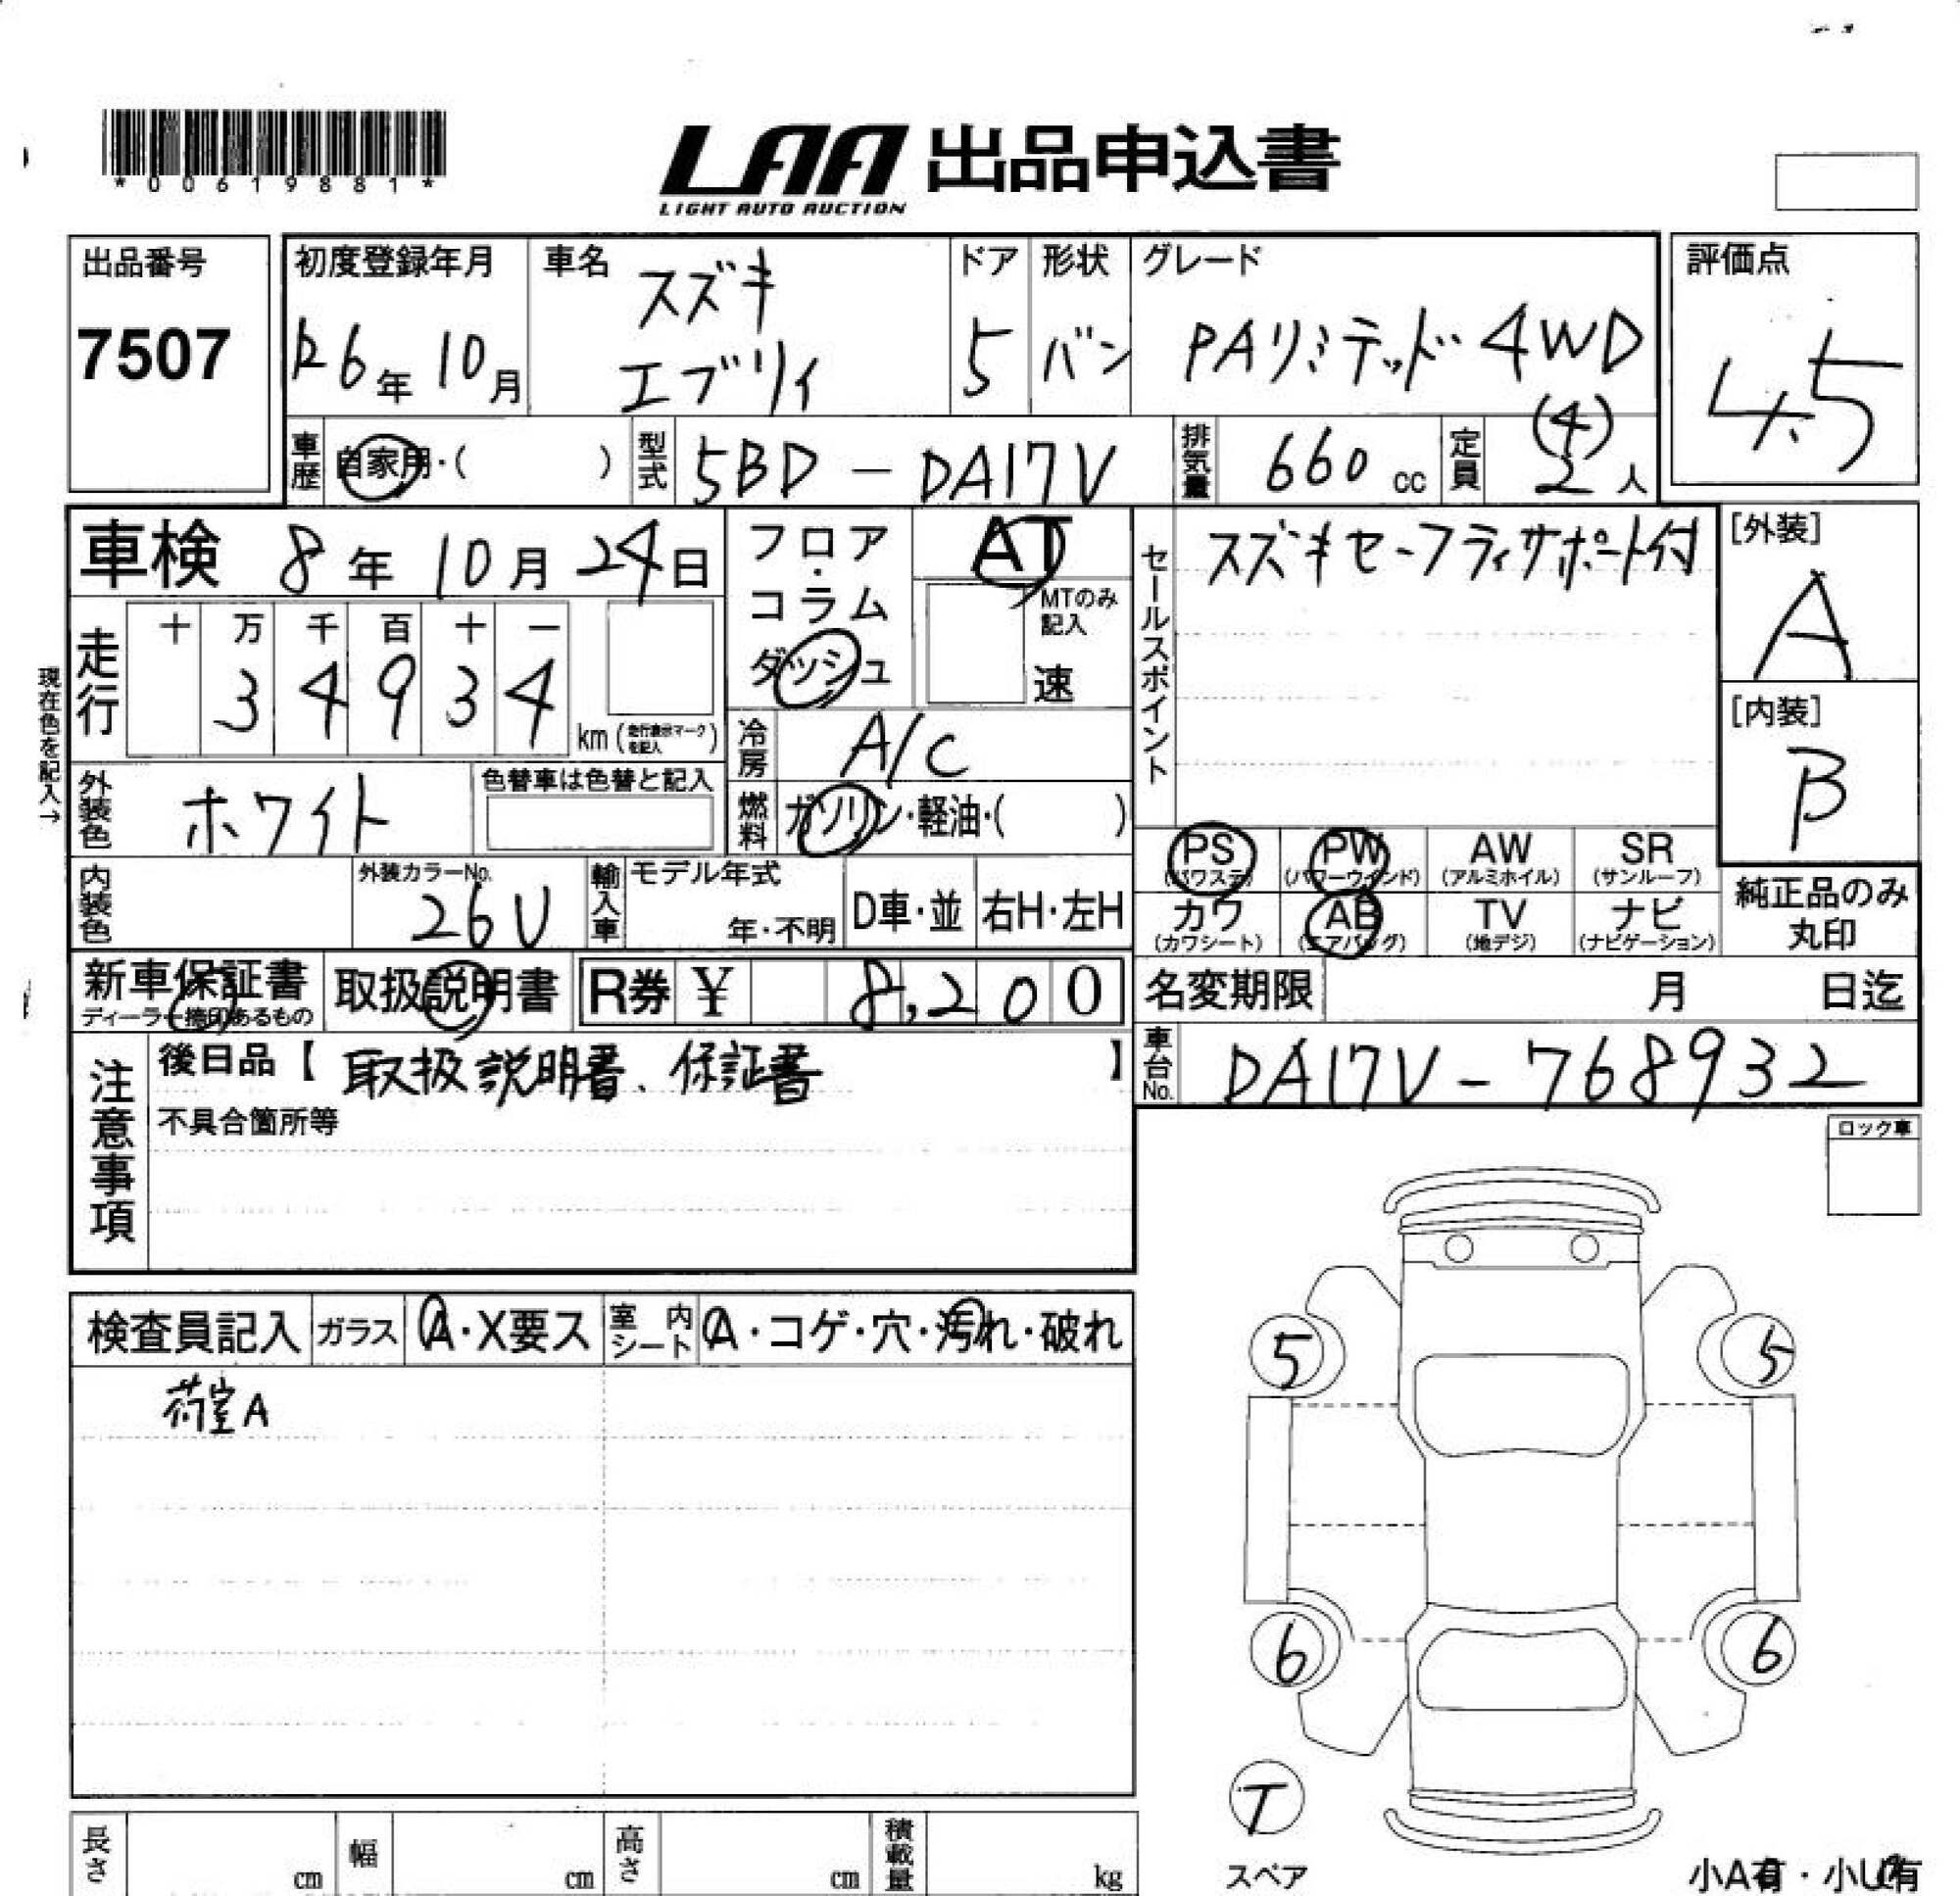 *00619881*
LAA 出品申込書
LIGHT AUTO AUCTION
出品番号
7507
初度登録年月
R6年10月
車名
スズキ
エブリイ
ドア
5
形状
バン
グレード
PAリミテッド 4WD
評価点
4.5
車歴
自家用・(　　)
型式
5BD-DA17V
排気量
660cc
定員
(4)
2人
車検 8年10月24日
フロア
・
コラム
ダッシュ
AT
MTのみ
記入
速
セールスポイント
スズキセーフティサポート付
[外装]
A
[内装]
B
現在色を記入→
走行
十 万 千 百 十 一
3 4 9 3 4
km(走行表示マークを記入)
冷房
A/C
外装色
ホワイト
色替車は色替と記入
燃料
ガソリン・軽油・(　　)
PS
(パワステ)
PW
(パワーウインド)
AW
(アルミホイル)
SR
(サンルーフ)
カワ
(カワシート)
AB
(エアバッグ)
TV
(地デジ)
ナビ
(ナビゲーション)
純正品のみ
丸印
内装色
外装カラーNo.
26U
輸入車
モデル年式
年・不明
D車・並
右H・左H
新車保証書
ディーラー捺印あるもの
取扱説明書
R券 ¥ 8,200
名変期限 月 日迄
車台No.
DA17V-768932
注意事項
後日品【取扱説明書、保証書】
不具合箇所等
ロック車
検査員記入
ガラス
A・X要ス
室内シート
A・コゲ・穴・汚れ・破れ
荷室A
5
5
6
6
T
スペア
長さ cm
幅 cm
高さ cm
積載量 kg
小A有・小U有